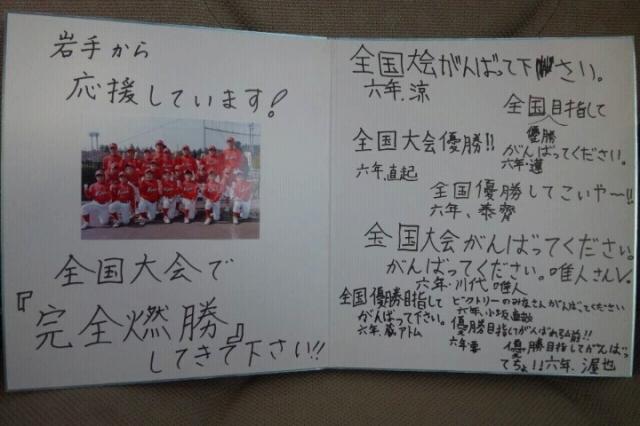 岩手から
応援しています!
全国大会で
『完全燃勝』
してきて下さい!!
全国大会がんばって下さい。
六年.涼
全国目指して
優勝
がんばってください。
六年.蓮
全国大会優勝!!
六年.直起
全国優勝してこいや〜!!
六年、泰齊
全国大会がんばってください。
がんばってください。唯人さんV.
六年.川代 唯人
全国優勝目指して
がんばって下さい。
六年.蔵アトム
ビクトリーのみなさんがんばってください
六年.小坂
優勝目指してがんばれ弘前!!
六年
優勝目指してがんばっ
てちょ!!六年、渥也